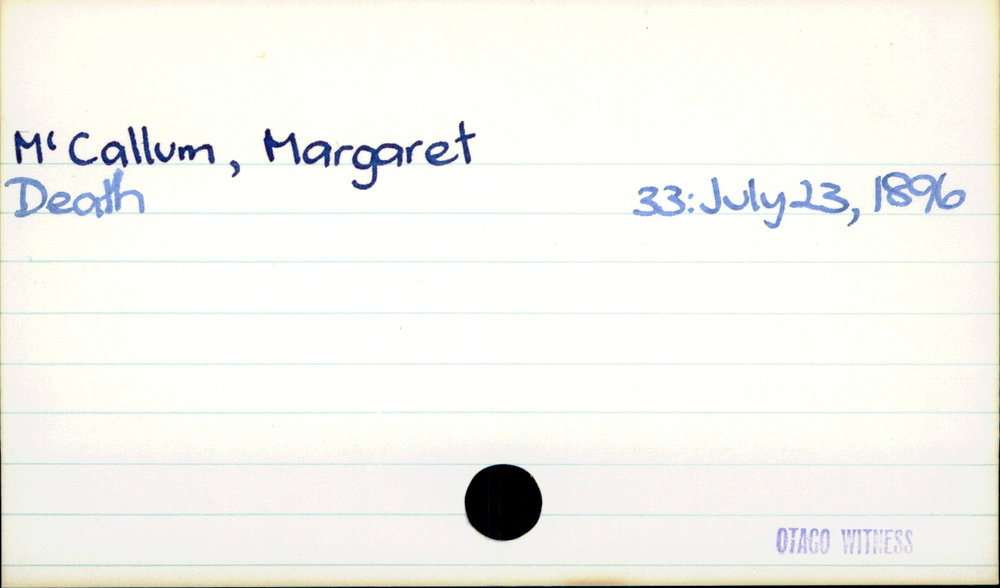 M‘Callum, Margaret
Death 33: July 23, 1896
OTAGO WITNESS